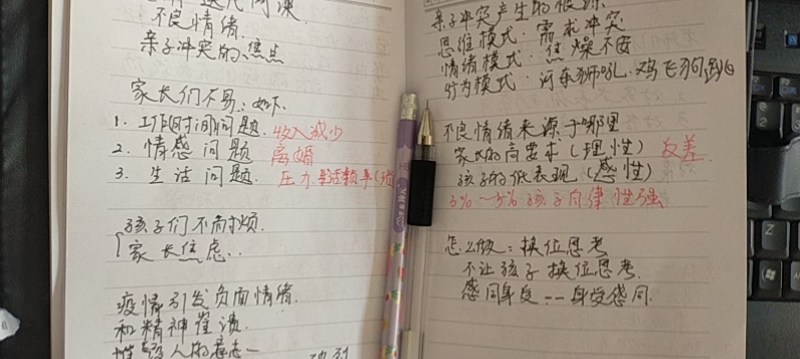 不良情绪.
亲子冲突的焦点
家长们不易:如下.
1. 工作时间问题. 收入减少
2. 情感问题 离婚
3. 生活问题. 压力
孩子们不耐烦.
家长焦虑..
疫情引发负面情绪.
和精神崩溃.
亲子冲突产生的根源
思维模式:需求冲突
情绪模式:焦燥不安
行为模式:河东狮吼.鸡飞狗跳
不良情绪来源于哪里
家长的高要求(理性) 反差
孩子的低表现(感性)
3%~5%孩子自律性强
怎么做:换位思考
不让孩子换位思考.
感同身受--身受感同.